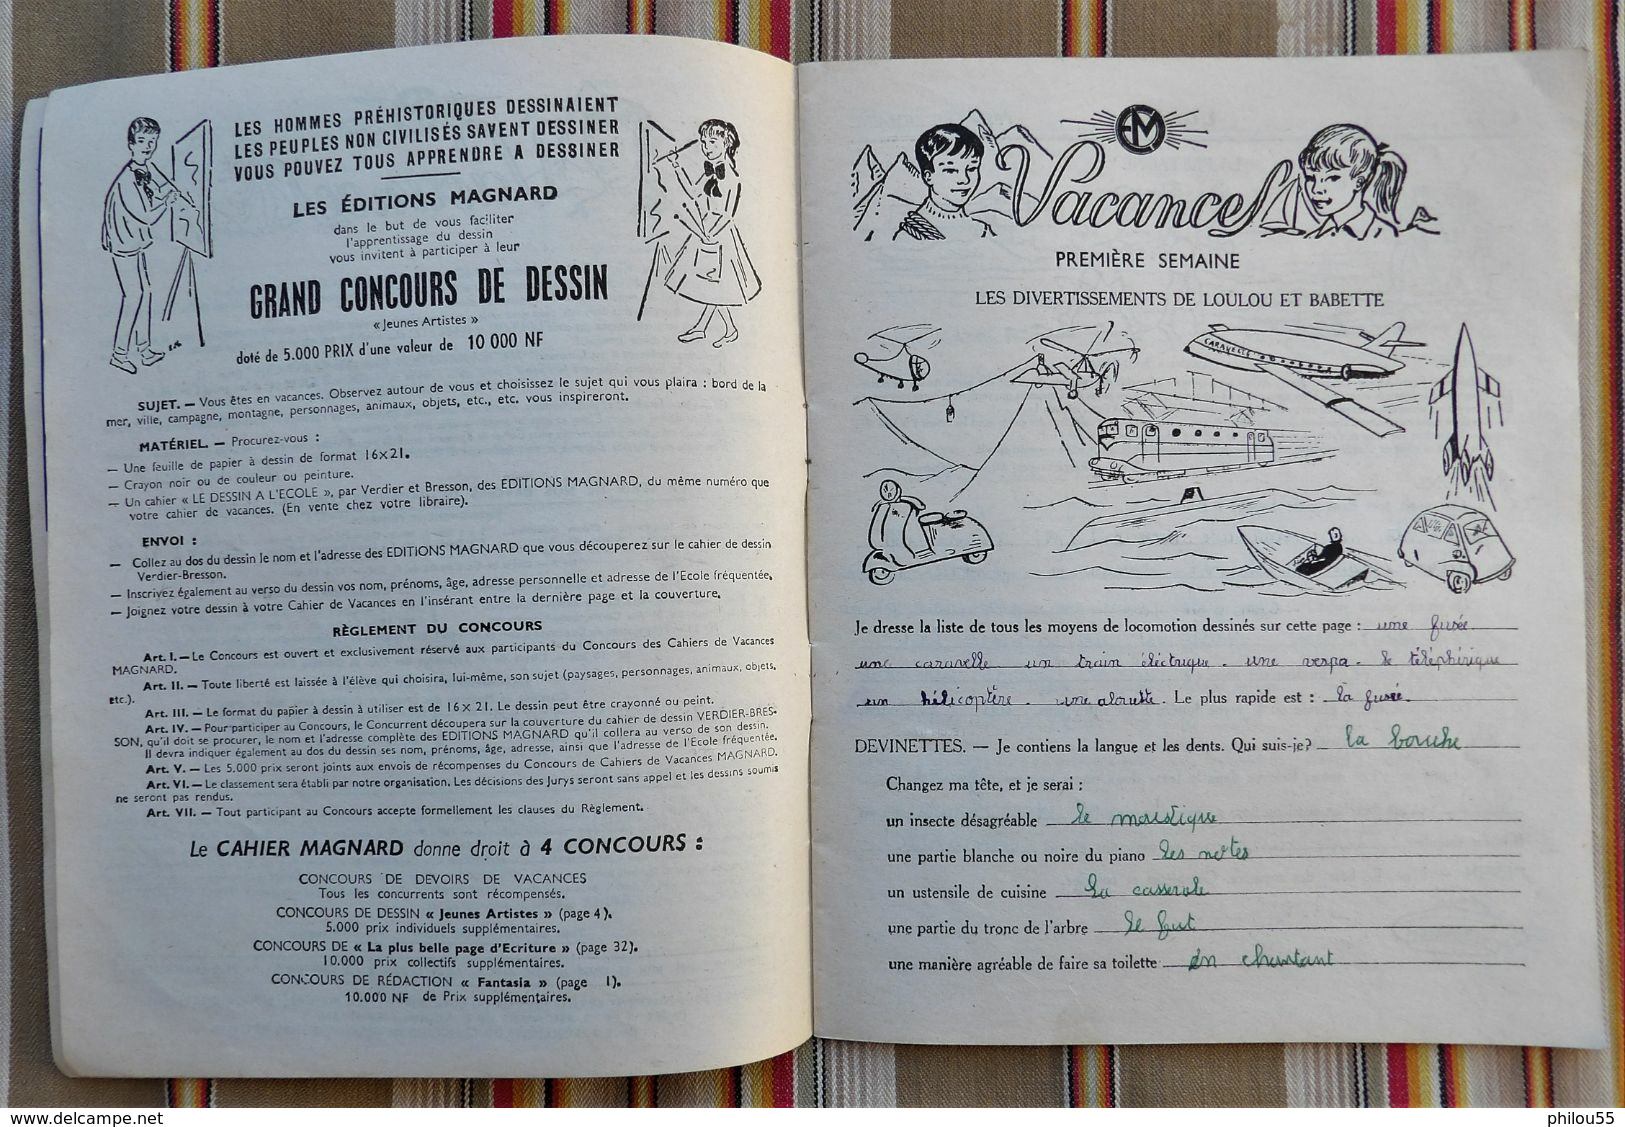 LES HOMMES PRÉHISTORIQUES DESSINAIENT
LES PEUPLES NON CIVILISÉS SAVENT DESSINER
VOUS POUVEZ TOUS APPRENDRE A DESSINER
LES ÉDITIONS MAGNARD
dans le but de vous faciliter
l'apprentissage du dessin
vous invitent à participer à leur
GRAND CONCOURS DE DESSIN
« Jeunes Artistes »
doté de 5.000 PRIX d'une valeur de 10 000 NF
SUJET. — Vous êtes en vacances. Observez autour de vous et choisissez le sujet qui vous plaira : bord de la
mer, ville, campagne, montagne, personnages, animaux, objets, etc., etc. vous inspireront.
MATÉRIEL. — Procurez-vous :
— Une feuille de papier à dessin de format 16×21.
— Crayon noir ou de couleur ou peinture.
— Un cahier « LE DESSIN A L'ECOLE », par Verdier et Bresson, des EDITIONS MAGNARD, du même numéro que
votre cahier de vacances. (En vente chez votre libraire).
ENVOI :
— Collez au dos du dessin le nom et l'adresse des EDITIONS MAGNARD que vous découperez sur le cahier de dessin
Verdier-Bresson.
— Inscrivez également au verso du dessin vos nom, prénoms, âge, adresse personnelle et adresse de l'Ecole fréquentée.
— Joignez votre dessin à votre Cahier de Vacances en l'insérant entre la dernière page et la couverture.
RÈGLEMENT DU CONCOURS
Art. I. — Le Concours est ouvert et exclusivement réservé aux participants du Concours des Cahiers de Vacances
MAGNARD.
Art. II. — Toute liberté est laissée à l'élève qui choisira, lui-même, son sujet (paysages, personnages, animaux, objets,
etc.).
Art. III. — Le format du papier à dessin à utiliser est de 16 × 21. Le dessin peut être crayonné ou peint.
Art. IV. — Pour participer au Concours, le Concurrent découpera sur la couverture du cahier de dessin VERDIER-BRES-
SON, qu'il doit se procurer, le nom et l'adresse complète des EDITIONS MAGNARD qu'il collera au verso de son dessin.
Il devra indiquer également au dos du dessin ses nom, prénoms, âge, adresse, ainsi que l'adresse de l'Ecole fréquentée.
Art. V. — Les 5.000 prix seront joints aux envois de récompenses du Concours de Cahiers de Vacances MAGNARD.
Art. VI. — Le classement sera établi par notre organisation. Les décisions des Jurys seront sans appel et les dessins soumis
ne seront pas rendus.
Art. VII. — Tout participant au Concours accepte formellement les clauses du Règlement.
Le CAHIER MAGNARD donne droit à 4 CONCOURS :
CONCOURS DE DEVOIRS DE VACANCES
Tous les concurrents sont récompensés.
CONCOURS DE DESSIN « Jeunes Artistes » (page 4).
5.000 prix individuels supplémentaires.
CONCOURS DE « La plus belle page d'Ecriture » (page 32).
10.000 prix collectifs supplémentaires.
CONCOURS DE RÉDACTION « Fantasia » (page 1).
10.000 NF de Prix supplémentaires.
EM
Vacances
PREMIÈRE SEMAINE
LES DIVERTISSEMENTS DE LOULOU ET BABETTE
CARAVELLE
Je dresse la liste de tous les moyens de locomotion dessinés sur cette page : une fusée
une caravelle un train éléctrique. une vespa. le téléphérique
un hélicoptère. une alouette. Le plus rapide est : la fusée.
DEVINETTES. — Je contiens la langue et les dents. Qui suis-je? la bouche
Changez ma tête, et je serai :
un insecte désagréable le moustique
une partie blanche ou noire du piano les notes
un ustensile de cuisine la casserole
une partie du tronc de l'arbre le fut
une manière agréable de faire sa toilette en chantant
www.delcampe.net
philou55